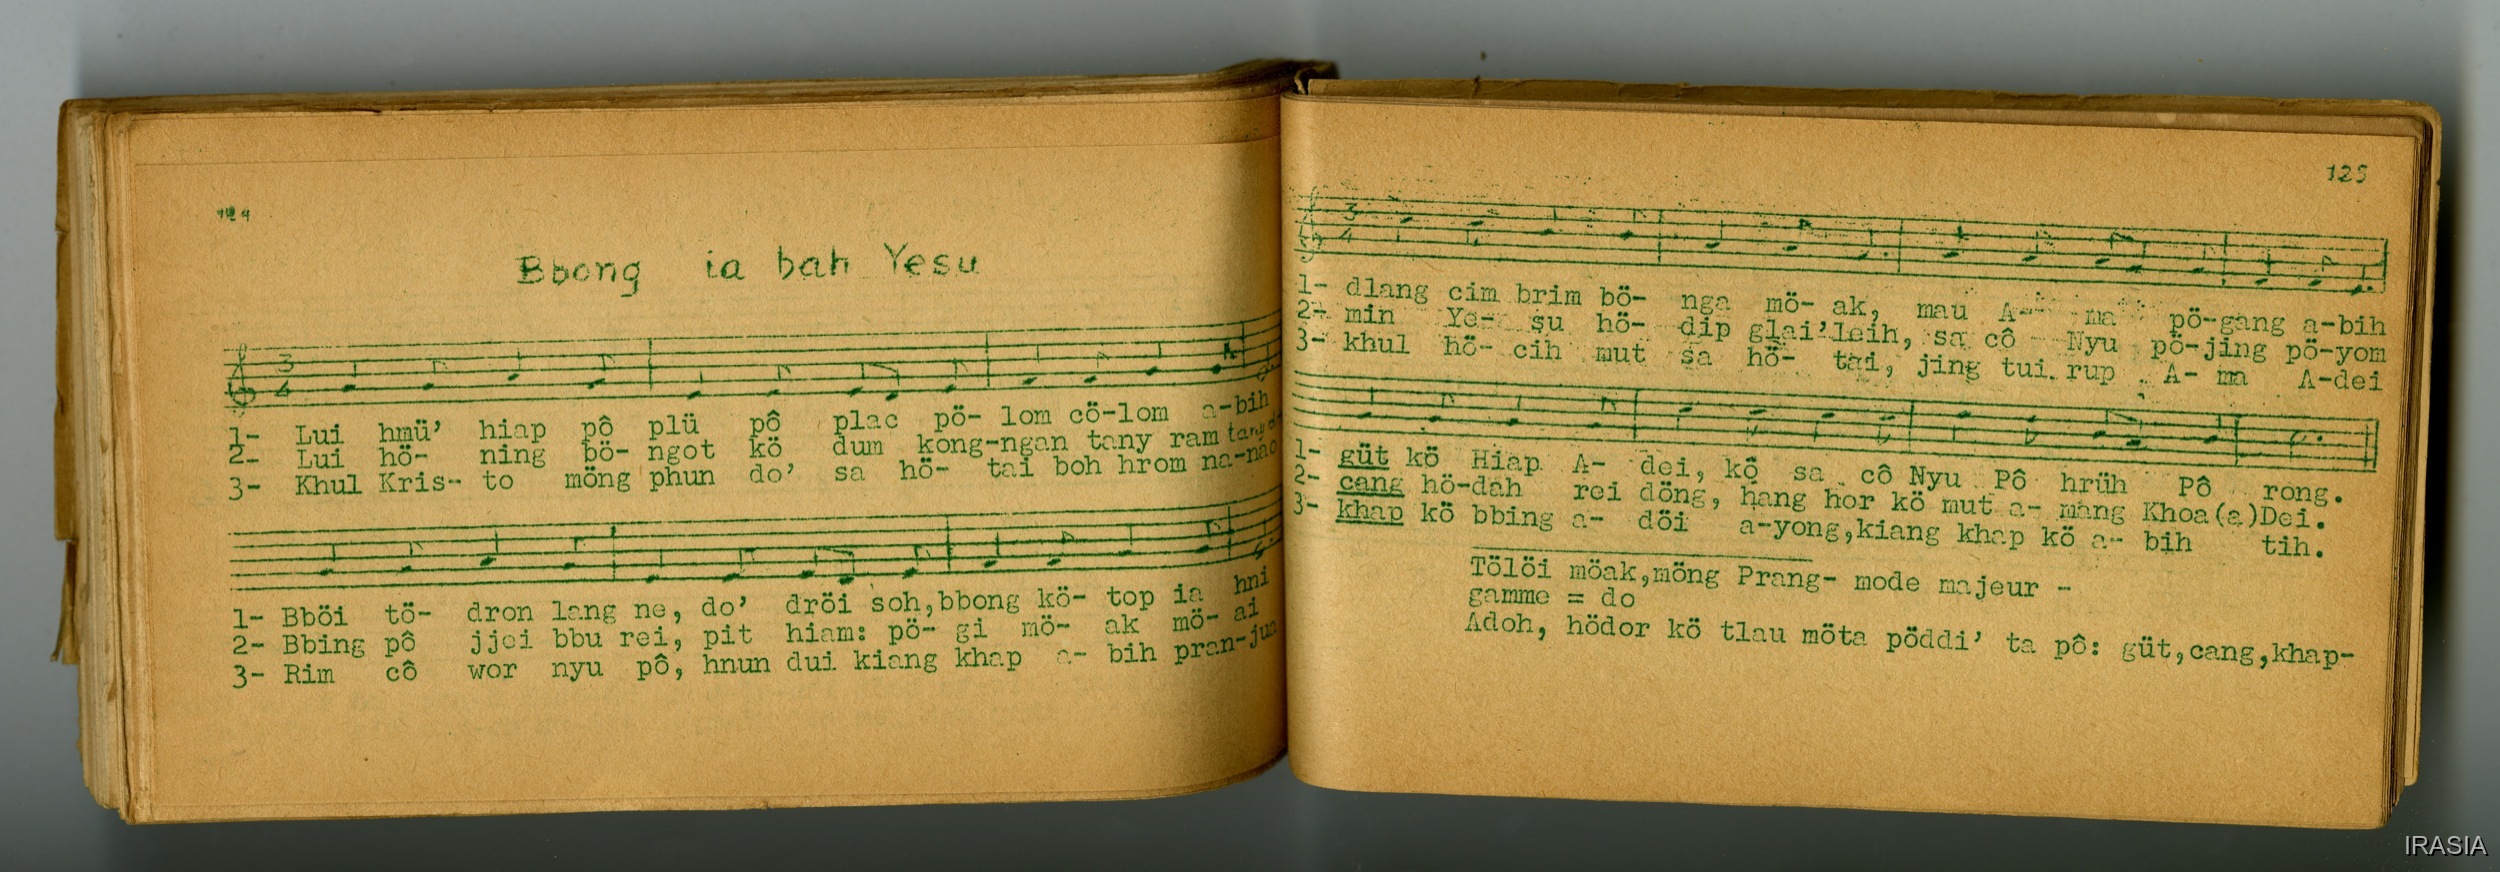 124
Bbong ia bah Yesu
3
4
1- Lui hmü' hiap pô plü pô plac pö- lom cö-lom a-bih
2- Lui hö- ning bö- ngot kö dum kong-ngan tany ram tany
3- Khul Kris- to möng phun do' sa hö- tai boh hrom na-nao
1- Bböi tö- dron lang ne, do' dröi soh,bbong kö- top ia hni
2- Bbing pô jjei bbu rei, pit hiam: pö- gi mö- ak mö- ai
3- Rim cô wor nyu pô, hnun dui kiang khap a- bih pran-jua
125
3
4
1- dlang cim brim bö- nga mö- ak, mau A- ma pö-gang a-bih
2- min Ye- su hö- dip glai'leih, sa cô Nyu pö-jing pö-yom
3- khul hö- cih mut sa hö- tai, jing tui rup A- ma A-dei
1- güt kö Hiap A- dei, kö sa cô Nyu Pô hrüh Pô rong.
2- cang hö-dah rei döng, hang hor kö mut a- mang Khoa(a)Dei.
3- khap kö bbing a- döi a-yong,kiang khap kö a- bih tih.
Tölöi möak,möng Prang- mode majeur -
gamme = do
Adoh, hödor kö tlau möta pöddi' ta pô: güt,cang,khap-
IRASIA